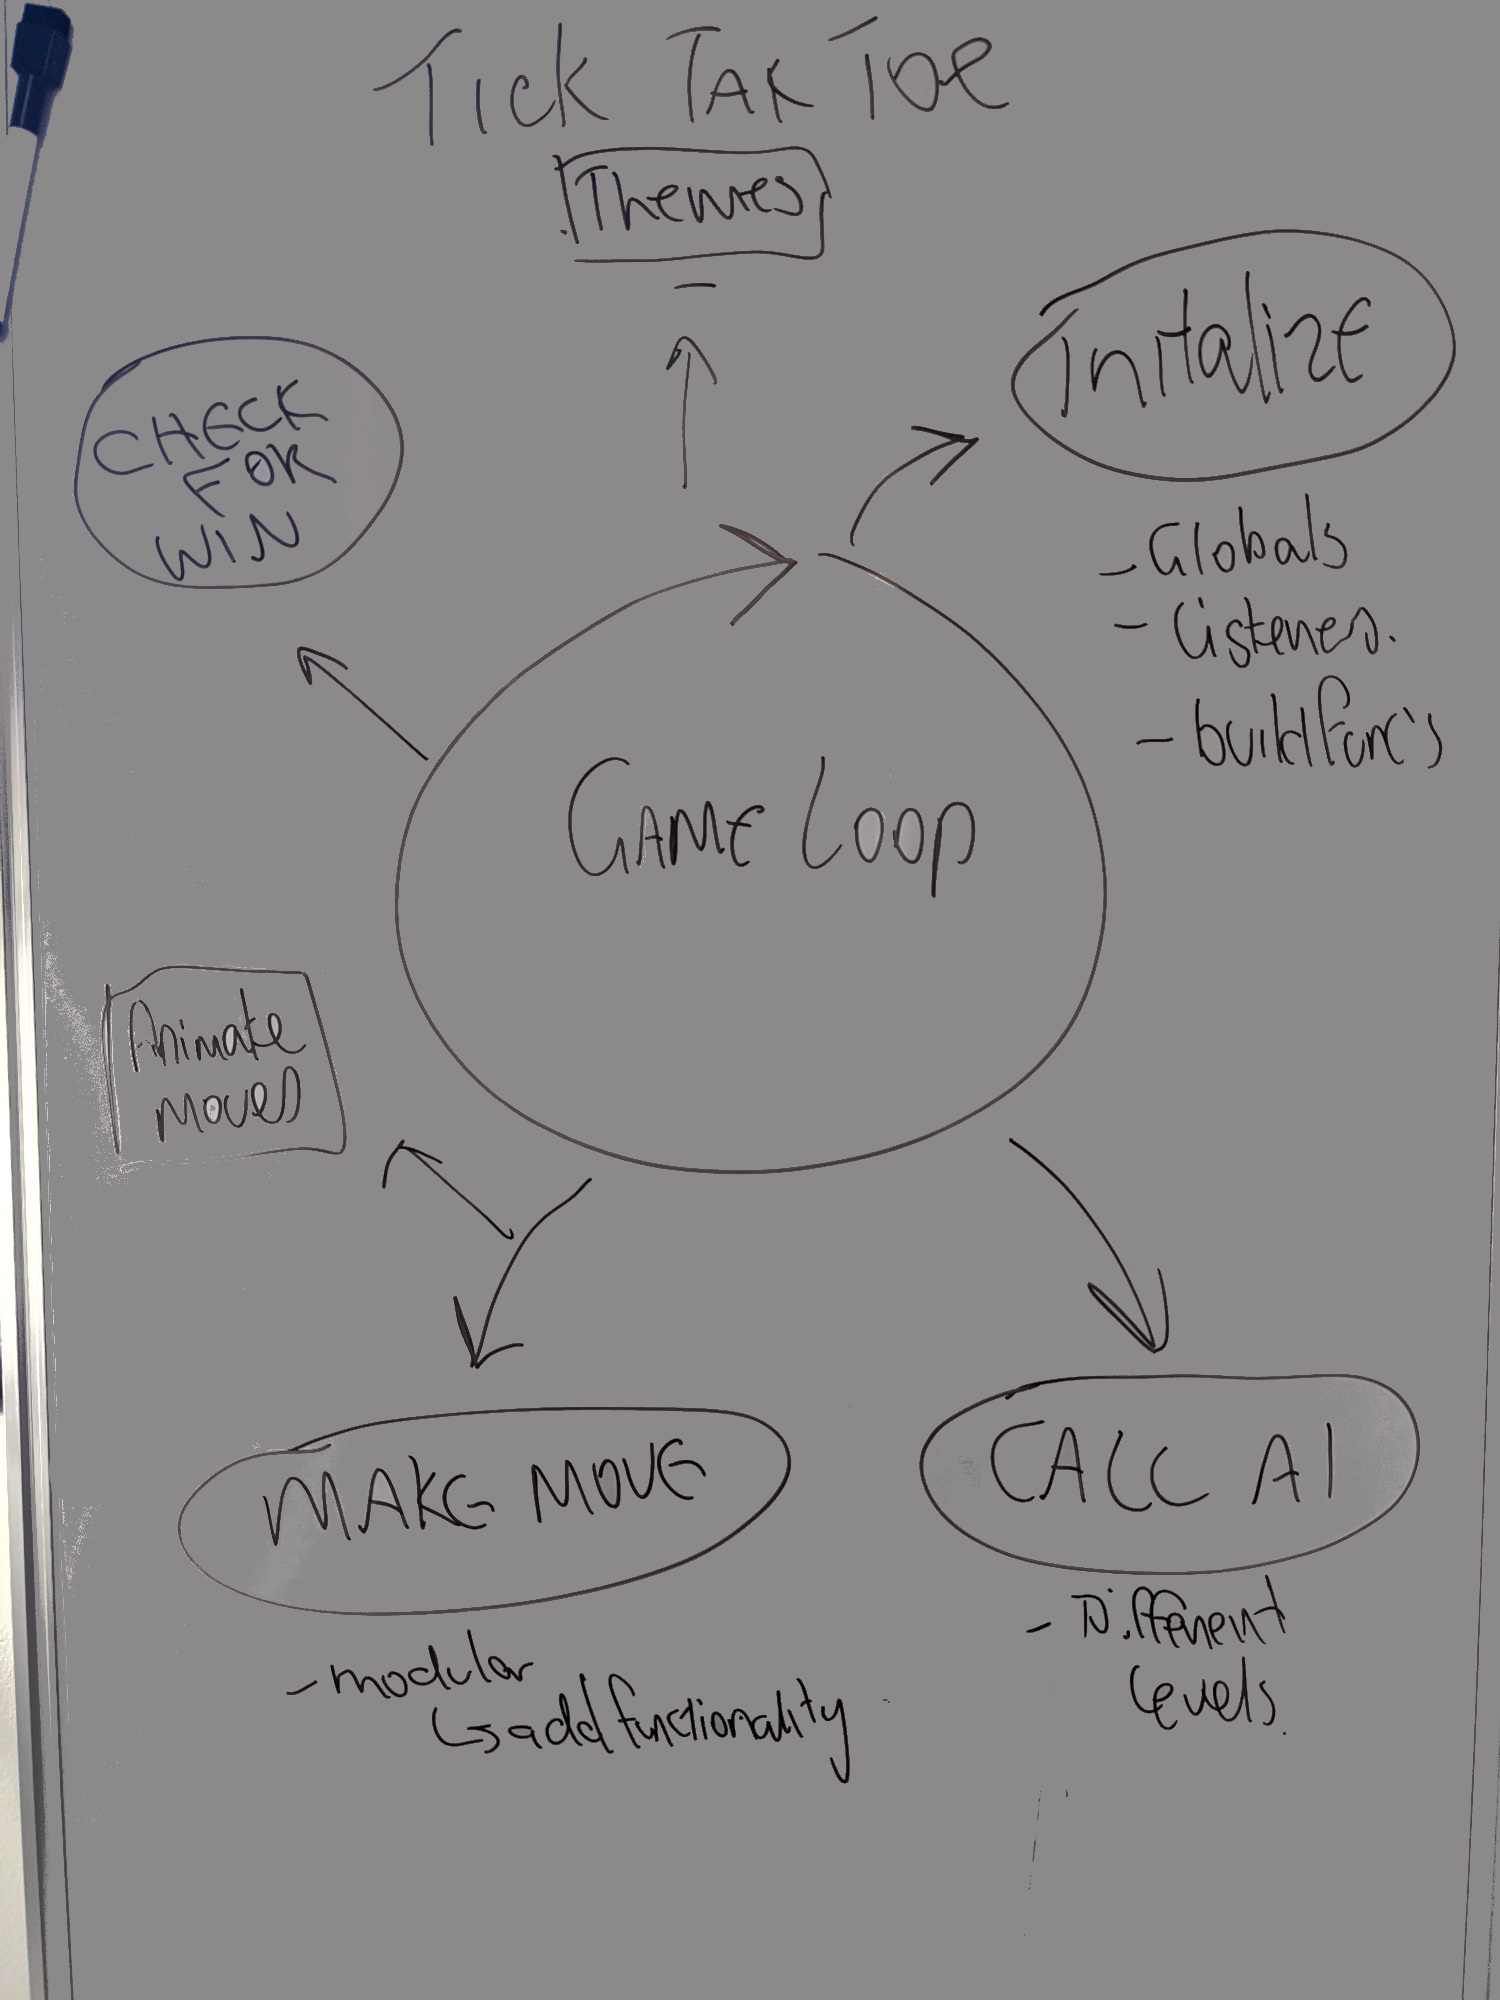 TICK TAK TOE
Themes
Initalize
- Globals
- Listeners.
- build func's
CHECK
FOR
WIN
GAME LOOP
Animate
moves
MAKE MOVE
- modular
↳ add functionality
CALL AI
- Different
Levels.